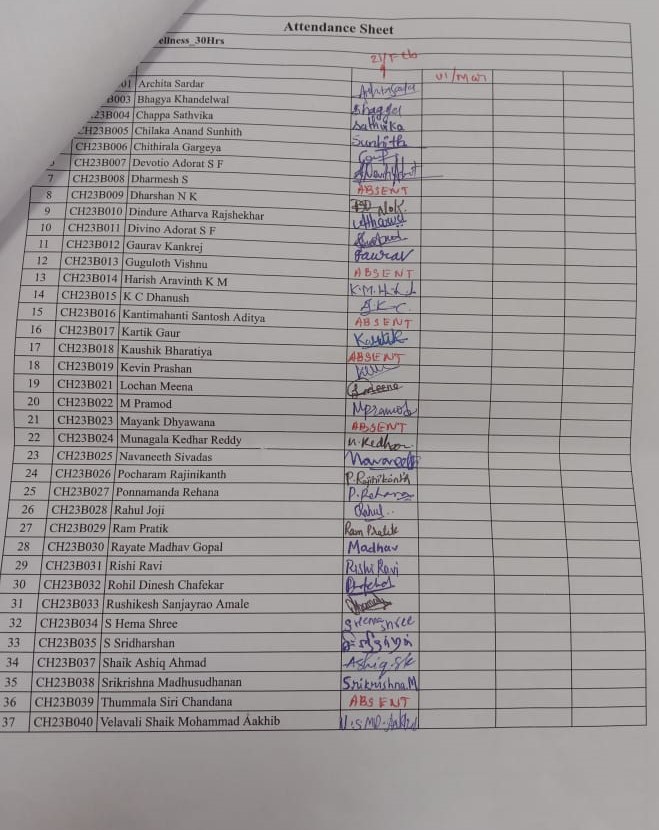 Attendance Sheet
ellness_30Hrs
21/Feb vi/mar
01 Archita Sardar
B003 Bhagya Khandelwal Bhagya
23B004 Chappa Sathvika Sathvika
CH23B005 Chilaka Anand Sunhith Sunhith
CH23B006 Chithirala Gargeya
CH23B007 Devotio Adorat S F
7 CH23B008 Dharmesh S ABSENT
8 CH23B009 Dharshan N K N.K.
9 CH23B010 Dindure Atharva Rajshekhar Atharva
10 CH23B011 Divino Adorat S F
11 CH23B012 Gaurav Kankrej Gaurav
12 CH23B013 Guguloth Vishnu ABSENT
13 CH23B014 Harish Aravinth K M K.M.
14 CH23B015 K C Dhanush
15 CH23B016 Kantimahanti Santosh Aditya ABSENT
16 CH23B017 Kartik Gaur Kartik
17 CH23B018 Kaushik Bharatiya ABSENT
18 CH23B019 Kevin Prashan
19 CH23B021 Lochan Meena Meena
20 CH23B022 M Pramod Mpramod
21 CH23B023 Mayank Dhyawana ABSENT
22 CH23B024 Munagala Kedhar Reddy Kedhar
23 CH23B025 Navaneeth Sivadas Navaneeth
24 CH23B026 Pocharam Rajinikanth P.Rajinikanth
25 CH23B027 Ponnamanda Rehana P.Rehana
26 CH23B028 Rahul Joji Rahul
27 CH23B029 Ram Pratik Ram Pratik
28 CH23B030 Rayate Madhav Gopal Madhav
29 CH23B031 Rishi Ravi Rishi Ravi
30 CH23B032 Rohil Dinesh Chafekar
31 CH23B033 Rushikesh Sanjayrao Amale
32 CH23B034 S Hema Shree
33 CH23B035 S Sridharshan
34 CH23B037 Shaik Ashiq Ahmad Ashiq.Sk
35 CH23B038 Srikrishna Madhusudhanan Srikrishna.M
36 CH23B039 Thummala Siri Chandana ABSENT
37 CH23B040 Velavali Shaik Mohammad Aakhib